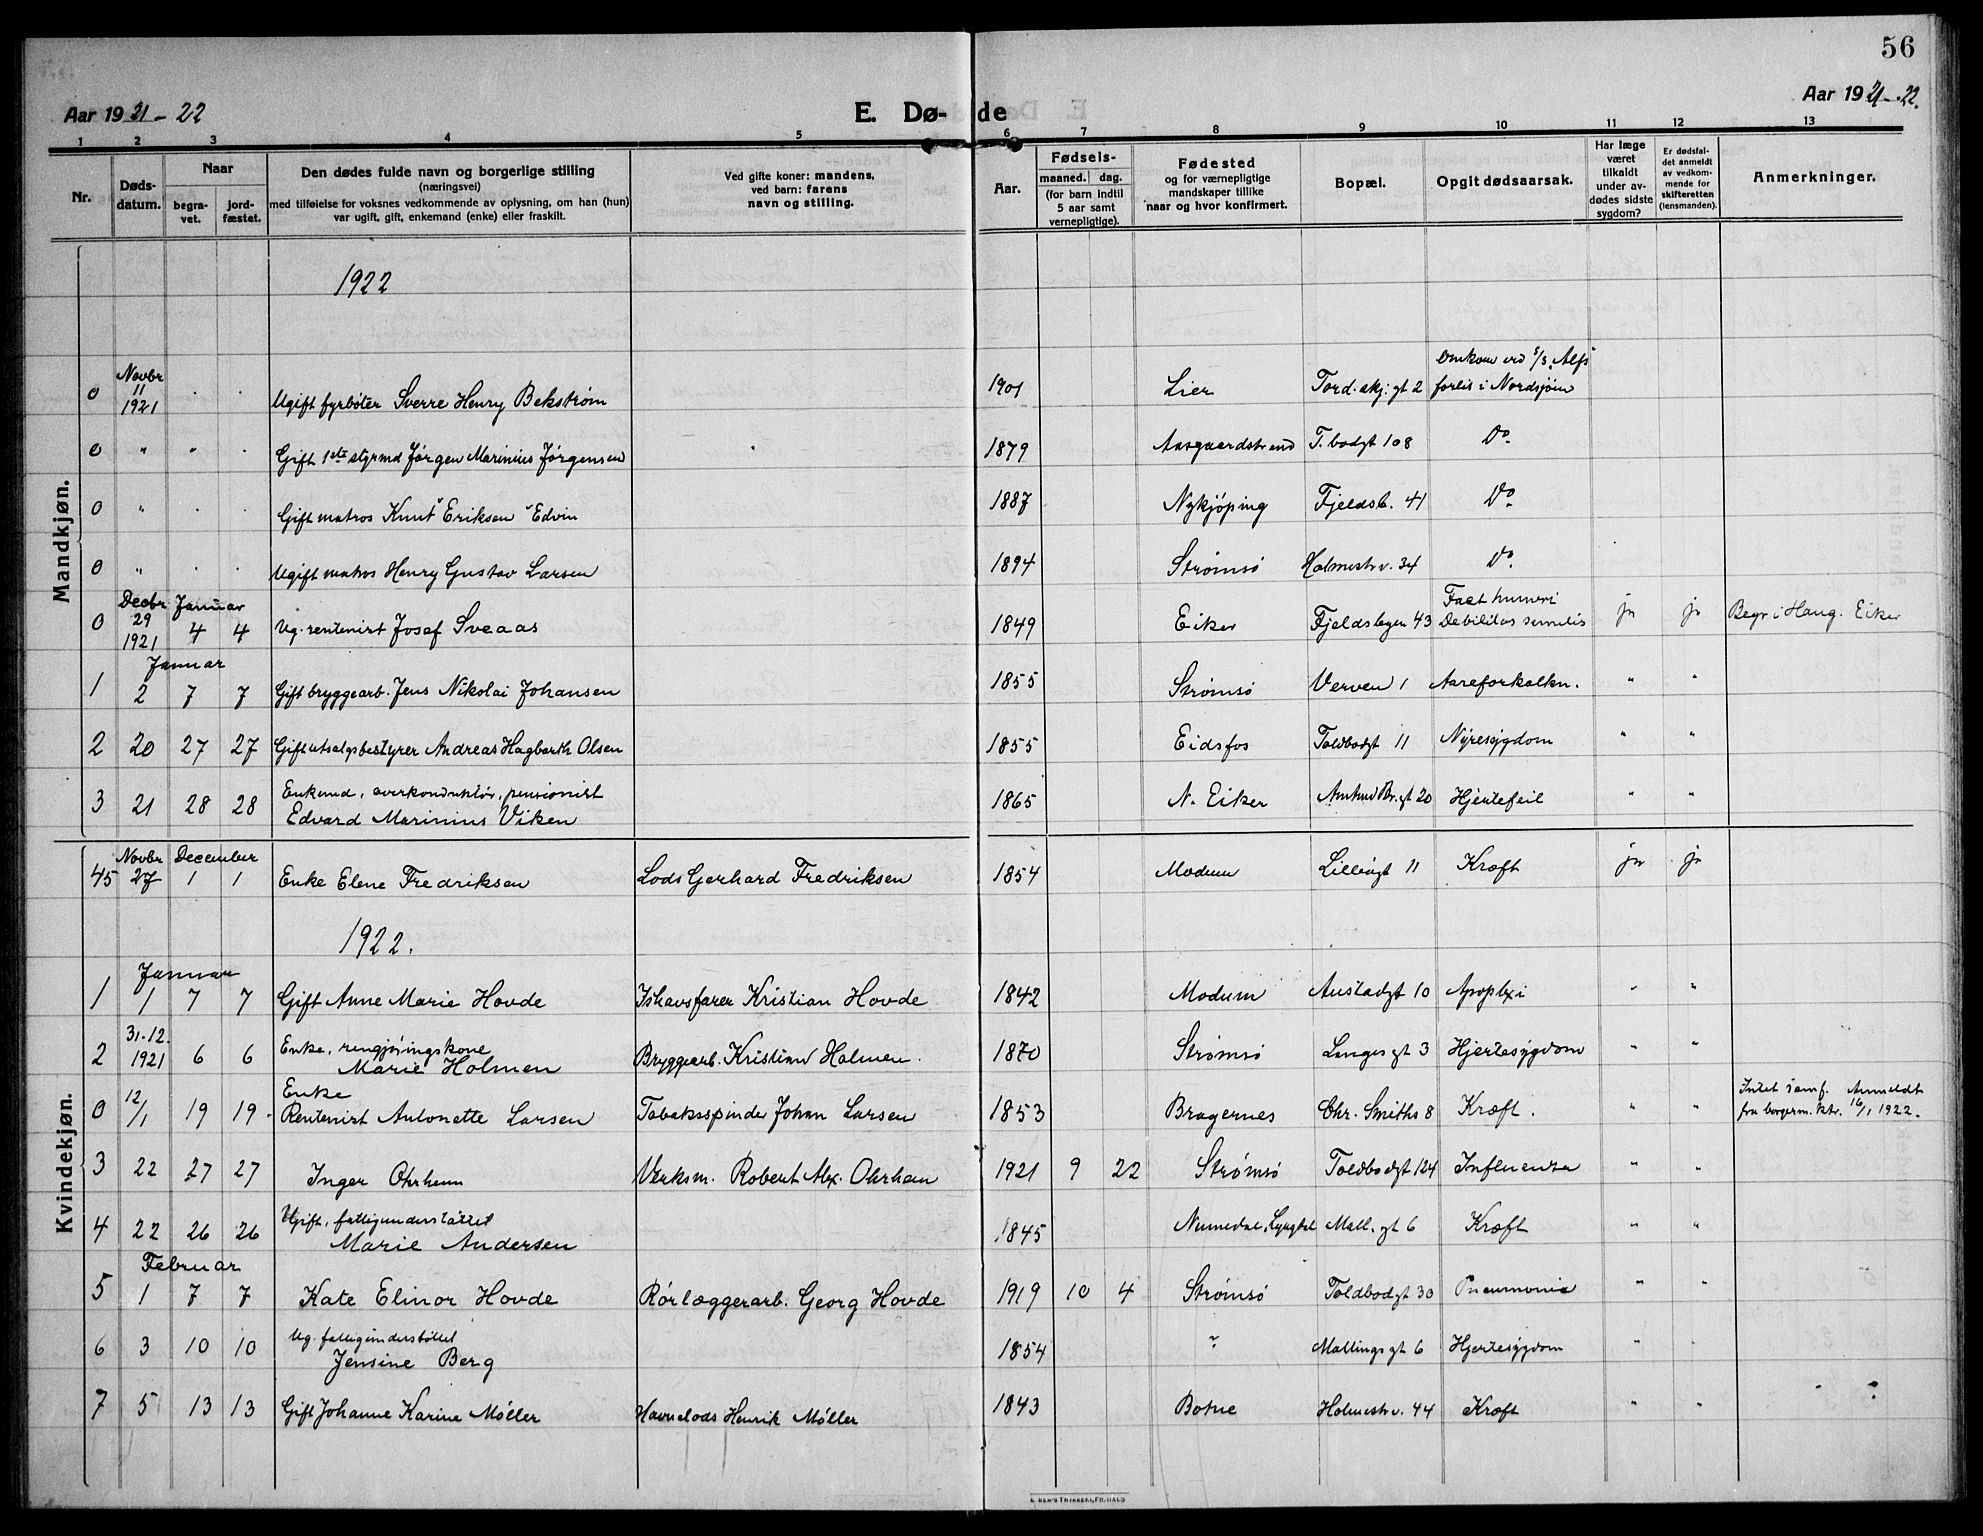 56
Aar 1921-22
E. Dø-de
Aar 1921-22.
1 2 3 4 5 6 7 8 9 10 11 12 13
Nr.
Døds-datum.
Naar
begra-vet.
jord-fæstet.
Den dødes fulde navn og borgerlige stilling
(næringsvei)
med tilføielse for voksnes vedkommende av oplysning, om han (hun)
var ugift, gift, enkemand (enke) eller fraskilt.
Ved gifte koner: mandens,
ved barn: farens
navn og stilling.
Aar.
Fødsels-
maaned. dag.
(for barn indtil
5 aar samt
vernepligtige).
Fødested
og for værnepligtige
mandskaper tillike
naar og hvor konfirmert.
Bopæl.
Opgit dødsaarsak.
Har læge
været
tilkaldt
under av-
dødes sidste
sygdom?
Er dødsfal-
det anmeldt
av vedkom-
mende for
skifteretten
(lensmanden).
Anmerkninger.
Mandkjøn.
1922
0 Novbr 11 1921 . . Ugift fyrbøter Sverre Henry Bekstrøm 1901 Lier Tord.skj.gt 2 Omkom ved S/S "Alfs" forlis i Nordsjøen
0 " " . Gift 1ste styrmd Jørgen Marinius Jørgensen 1879 Aasgaardstrand T.bodgt 108 Do.
0 " . . Gift matros Knut Eriksen Edvin 1887 Nykjøping Fjeldsb. 41 Do.
0 " . . Ugift matros Henry Gustav Larsen 1894 Strømsø Holmestr v. 34 Do.
0 Decbr 29 1921 Januar 4 4 Ug. rentenist Josef Sveaas 1849 Eiker Fjeldslagen 43 Fract humeri Debilitas senilis ja ja Begr i Haug. Eiker
Januar
1 2 7 7 Gift bryggearb. Jens Nikolai Johansen 1855 Strømsø Verven 1 Aareforkalkn. " "
2 20 27 27 Gift utsalgsbestyrer Andreas Hagbarth Olsen 1855 Eidsfos Toldbodgt 11 Nyresygdom " "
3 21 28 28 Enkemd, overkonduktør, pensionist
Edvard Marinius Viken 1865 N. Eiker Amtmd Bl.gt 20 Hjertefeil " "
Kvindekjøn.
45 Novbr 27 December 1 1 Enke Elene Fredriksen Lods Gerhard Fredriksen 1854 Modum Lillesgt 11 Kræft ja ja
1922.
Januar
1 1 7 7 Gift Anne Marie Hovde Ishavsfarer Kristian Hovde 1842 Modum Austadgt 10 Apoplexi " "
2 31-12. 1921 6 6 Enke, rengjøringskone
Marie Holmen Bryggearb. Kristian Holmen. 1870 Strømsø Langes gt 3 Hjertesygdom " "
0 12/1 19 19 Enke
Rentenist Antonette Larsen Tobaksspinder Johan Larsen 1853 Bragernes Chr. Smiths 8 Kræft. " " Intet samf. Anmeldt fra borgerm.ktr. 16/1 1922.
3 22 27 27 Inger Ohrheim Verksm. Robert Alex. Ohrhan 1921 9 22 Strømsø Toldbodgt 124 Influenza " "
4 22 26 26 Ugift, fattigunderstøttet
Marie Andersen 1845 Numedal, Lyngdal Mall. gt 6 Kræft " "
Februar
5 1 7 7 Kate Elinor Hovde Rørlæggerarb. Georg Hovde 1919 10 4 Strømsø Toldbodgt 30 Pneumonie " "
6 3 10 10 Ug. fattigunderstøttet
Jensine Berg 1854 ? Mallings gt 6 Hjertesygdom " "
7 5 13 13 Gift Johanne Karine Møller Havnelods Henrik Møller 1843 Botne Holmestr v. 44 Kræft " "